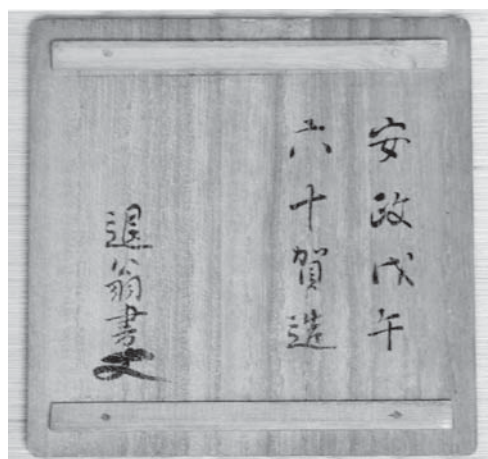 安政戊午
六十賀造
退翁書